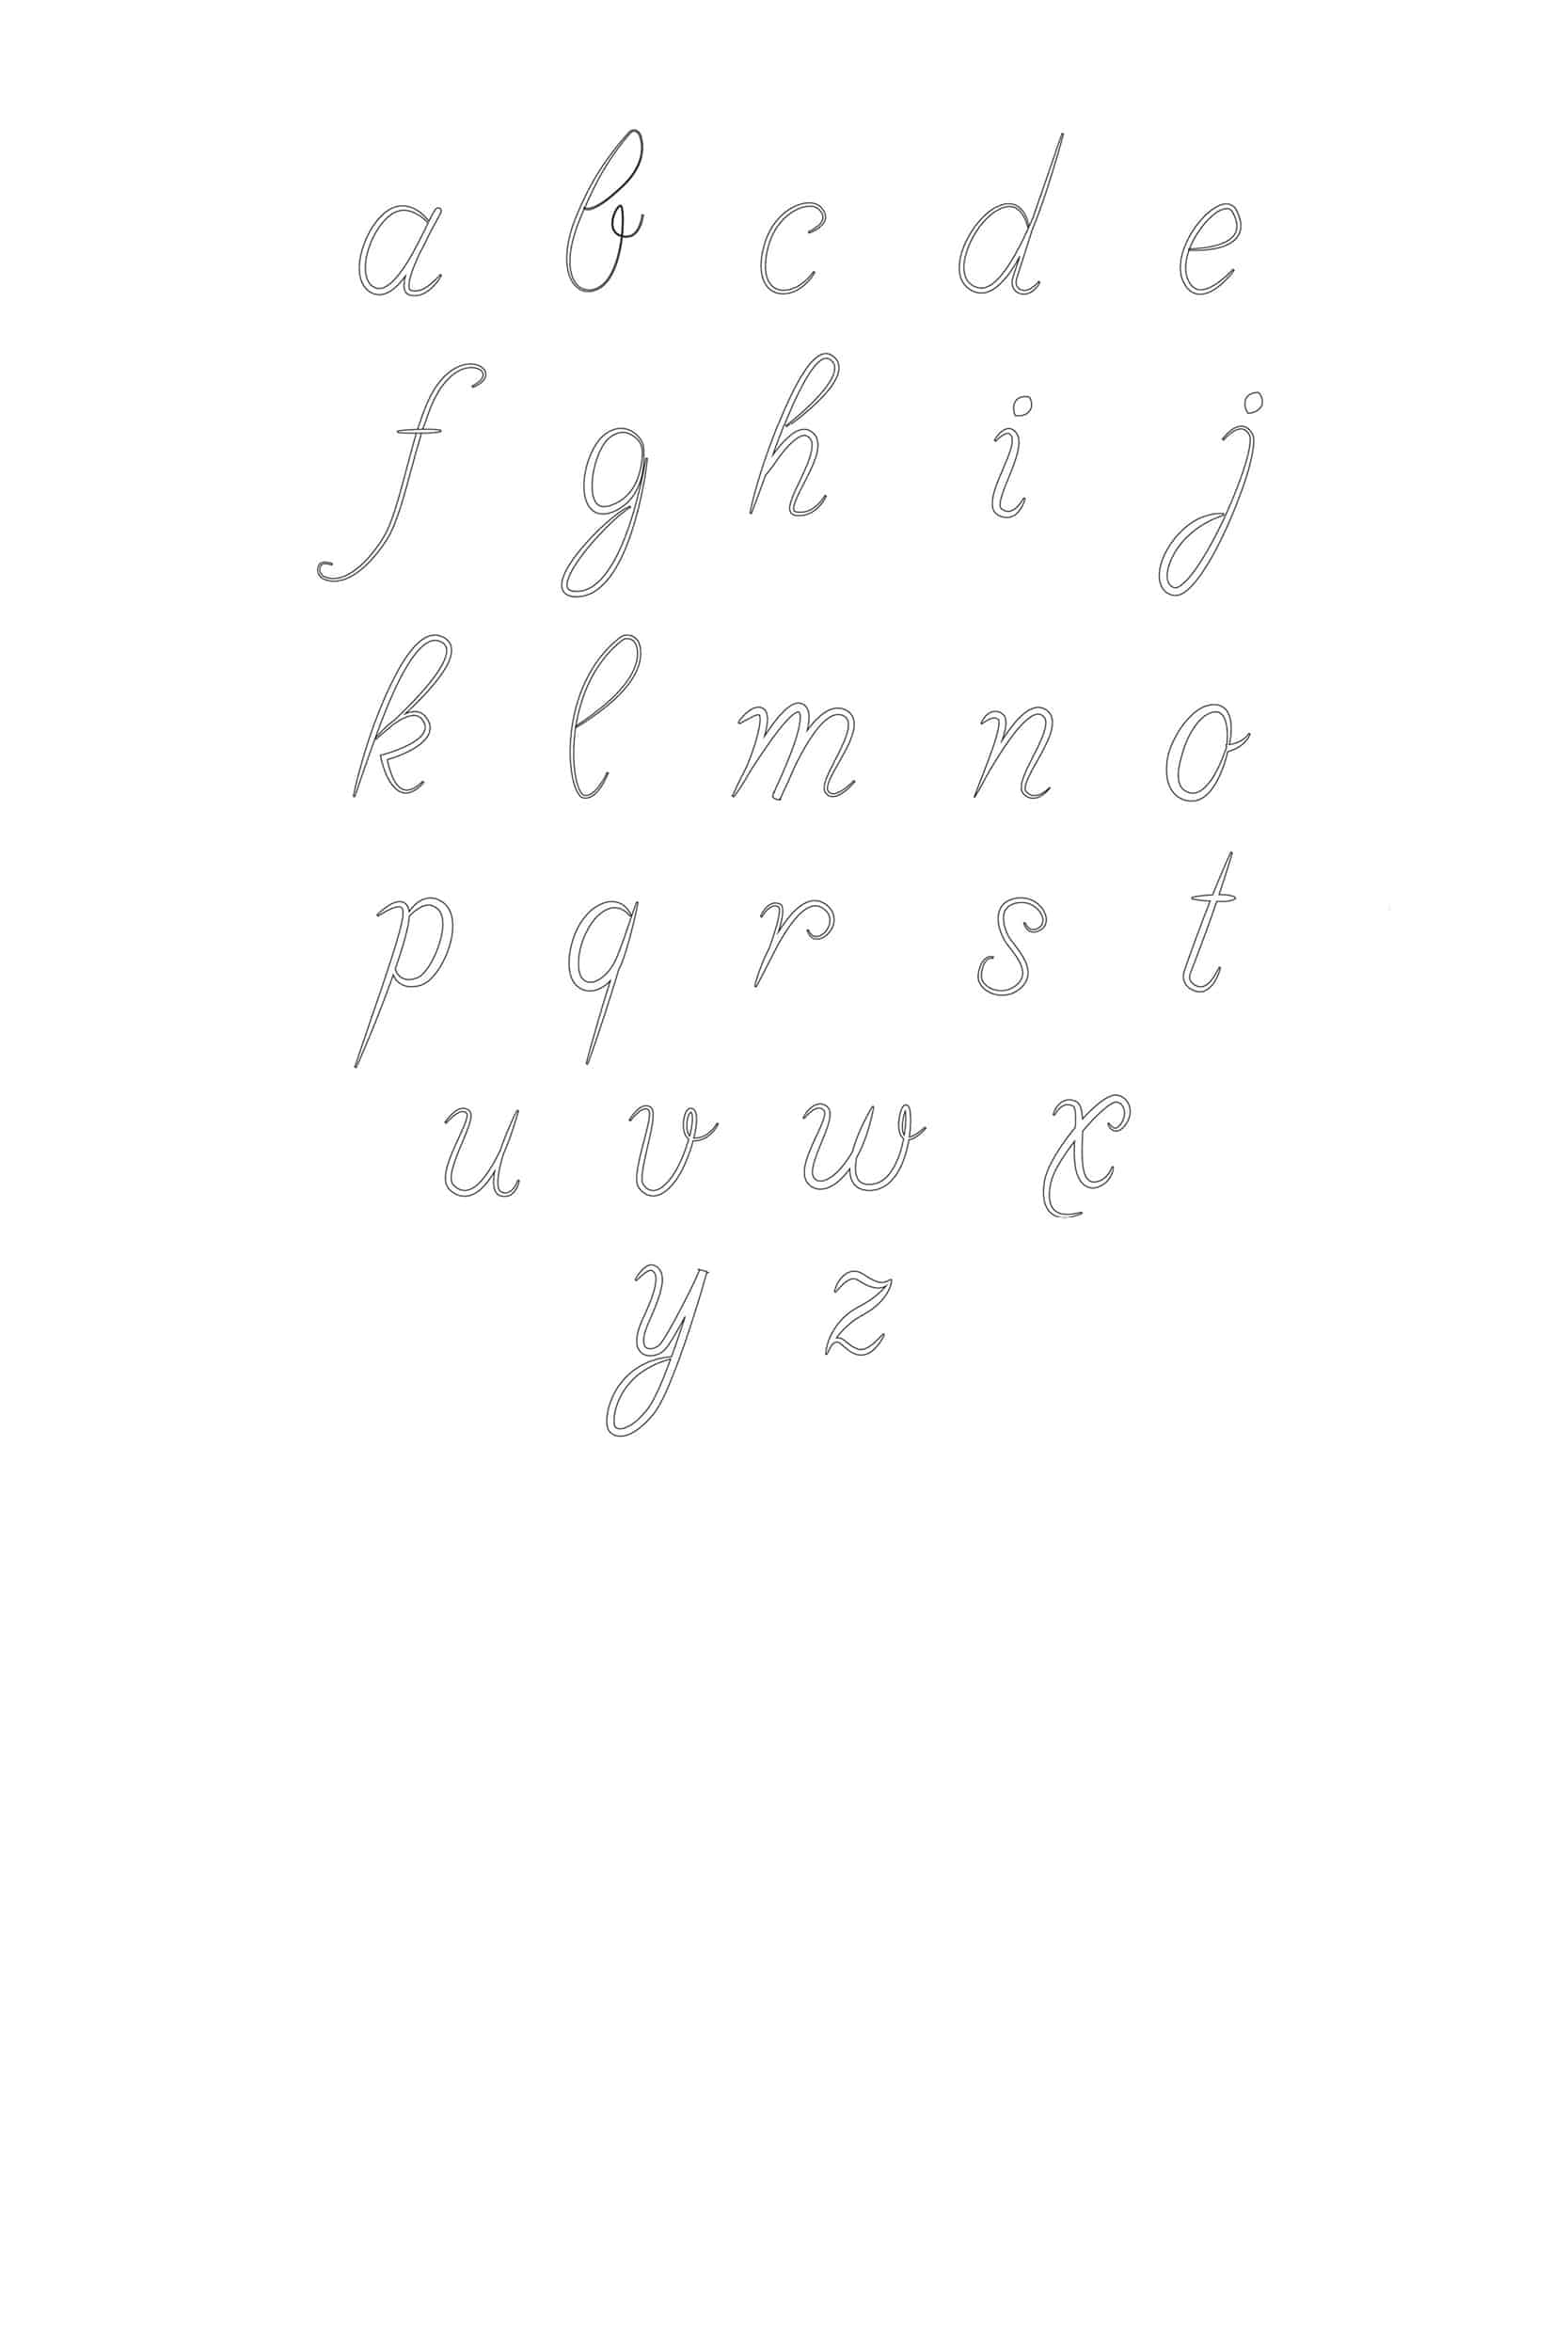 a b c d e
f g h i j
k l m n o
p q r s t
u v w x
y z